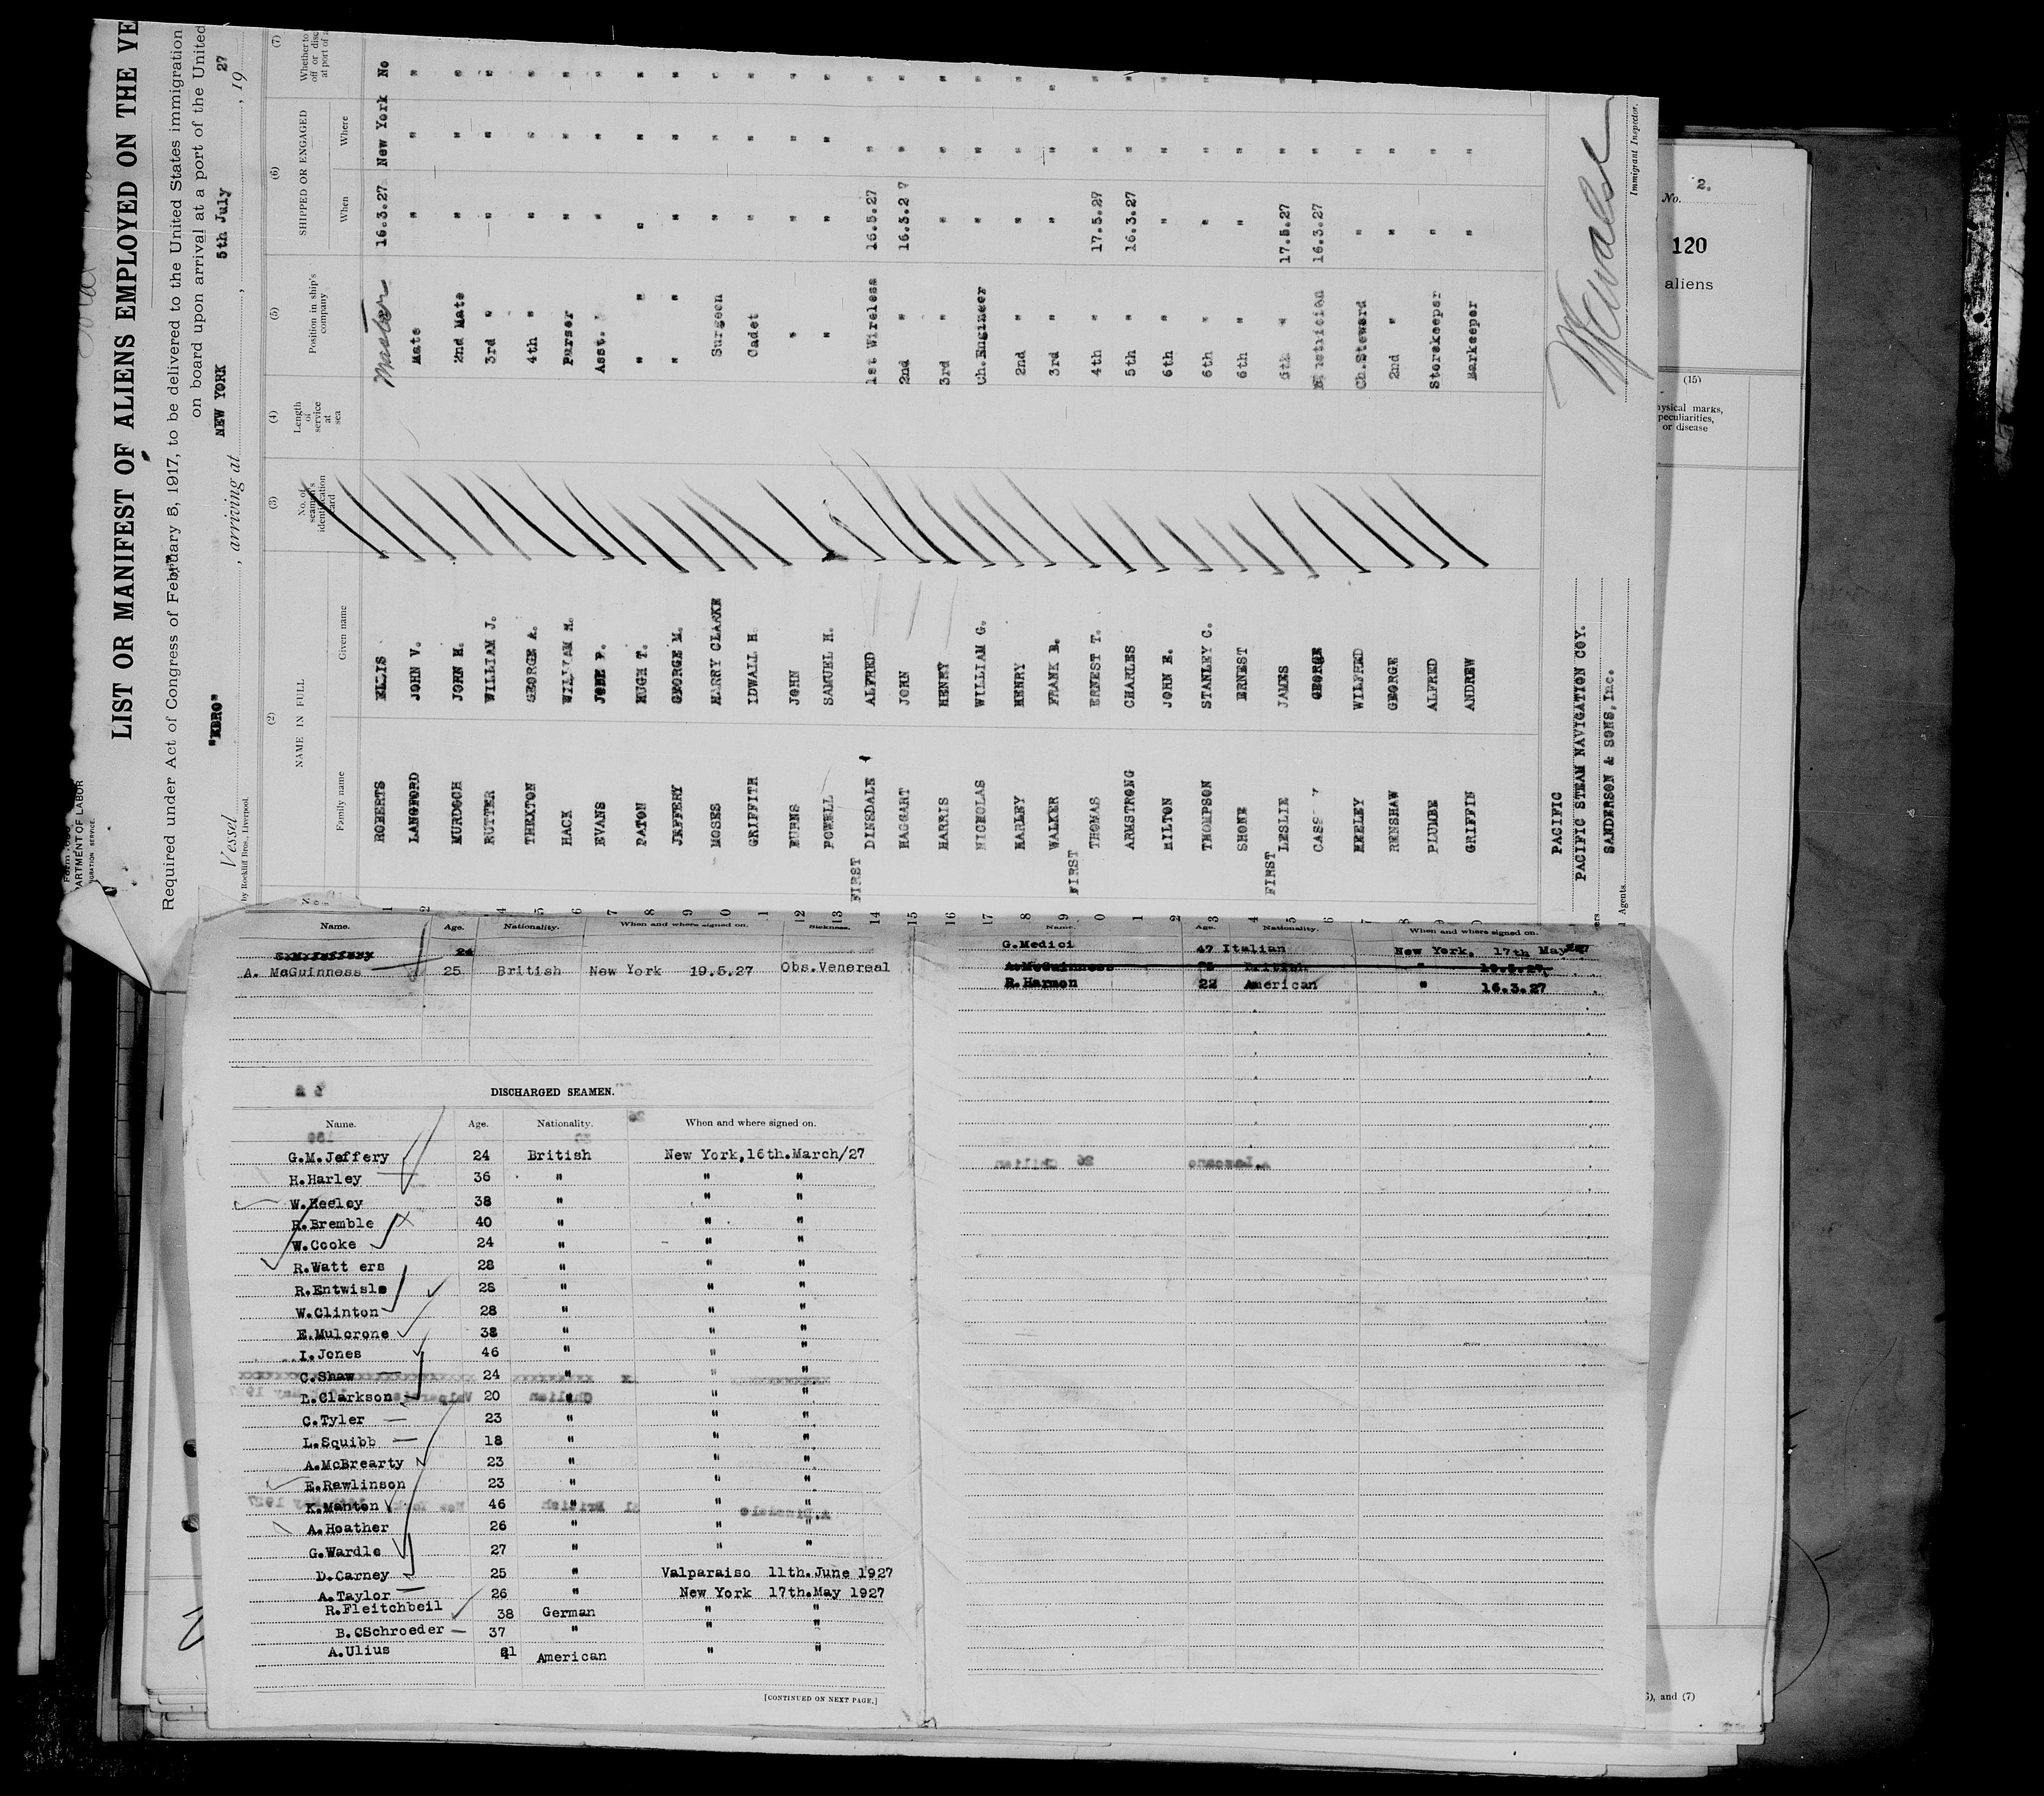 LIST OR MANIFEST OF ALIENS EMPLOYED ON THE VE
Required under Act of Congress of February 5, 1917, to be delivered to the United States immigration
on board upon arrival at a port of the United
Vessel "EBRO", arriving at NEW YORK, 5th July, 19 27
by Rockliff Bros., Liverpool.
DEPARTMENT OF LABOR
(2) (3) (4) (5) (6) (7)
NAME IN FULL No. of seaman's identification card Length of service at sea Position in ship's company SHIPPED OR ENGAGED
Family name Given name When Where
1 ROBERTS ELLIS Master 16.3.27 New York No
2 LANGFORD JOHN V. Mate " " "
3 MURDOCH JOHN H. 2nd Mate " " "
4 RUTTER WILLIAM J. 3rd " " " "
5 THEXTON GEORGE A. 4th " " " "
6 HACK WILLIAM H. Purser " " "
7 EVANS Asst. " " " "
8 PATON HUGH T. " " " "
9 JEFFERY GEORGE M. " " " "
0 MOSES HARRY CLARKE Surgeon " " "
1 GRIFFITH IDWALL H. Cadet " " "
12 BURNS JOHN " " " "
13 POWELL SAMUEL H. " " " "
14 FIRST DINSDALE ALFRED 1st Wireless 16.5.27 " "
15 HAGGART JOHN 2nd " 16.3.27 " "
16 HARRIS HENRY 3rd " " " "
17 NICHOLAS WILLIAM G. Ch.Engineer " " "
8 HARLEY HENRY 2nd " " " "
9 WALKER FRANK B. 3rd " " " "
0 FIRST THOMAS ERNEST T. 4th " 17.5.27 " "
1 ARMSTRONG CHARLES 5th " 16.3.27 " "
2 HILTON JOHN E. 6th " " " "
3 THOMPSON STANLEY C. 6th " " " "
4 SHONE ERNEST 6th " " "
5 FIRST LESLIE JAMES 6th " 17.5.27 " "
6 GEORGE 16.3.27 " "
7 KEELEY WILFRED Ch.Steward " " "
8 RENSHAW GEORGE 2nd " " " "
9 PLUMBE ALFRED Storekeeper " " "
0 GRIFFIN ANDREW Barkeeper " " "
PACIFIC
PACIFIC STEAM NAVIGATION COY.
SANDERSON & SONS,Inc.
Agents.
Immigrant Inspector.
No. 2.
120
aliens
(15)
physical marks,
peculiarities,
or disease
), and (7)
Name. Age. Nationality. When and where signed on. Sickness.
G.M.Jeffery 24
A. McGuinness 25 British New York 19.5.27 Obs.Venereal
DISCHARGED SEAMEN.
Name. Age. Nationality. When and where signed on.
G.M.Jeffery 24 British New York,16th.March/27
H.Harley 36 " " "
W.Keeley 38 " " "
R.Bremble 40 " " "
W.Cooke 24 " " "
R.Watt ers 28 " " "
R.Entwisle 28 " " "
W.Clinton 28 " " "
E.Mulcrone 38 " " "
I.Jones 46 " " "
C.Shaw 24 " " "
E.Clarkson 20 " " "
C.Tyler 23 " " "
L.Squibb 18 " " "
A.McBrearty 23 " " "
E.Rawlinson 23 " " "
K.Manton 46 " " "
A.Hoather 26 " " "
G.Wardle 27 " " "
D.Carney 25 " Valparaiso 11th.June 1927
A.Taylor 26 " New York 17th.May 1927
R.Fleitchbeil 38 German " "
B.CSchroeder 37 " " "
A.Ulius American " "
[CONTINUED ON NEXT PAGE.]
Name. Age. Nationality. When and where signed on.
G.Medici 47 Italian New York, 17th May
A.McGuinness 25 British " 19.5.27
R.Harmon 22 American " 16.3.27